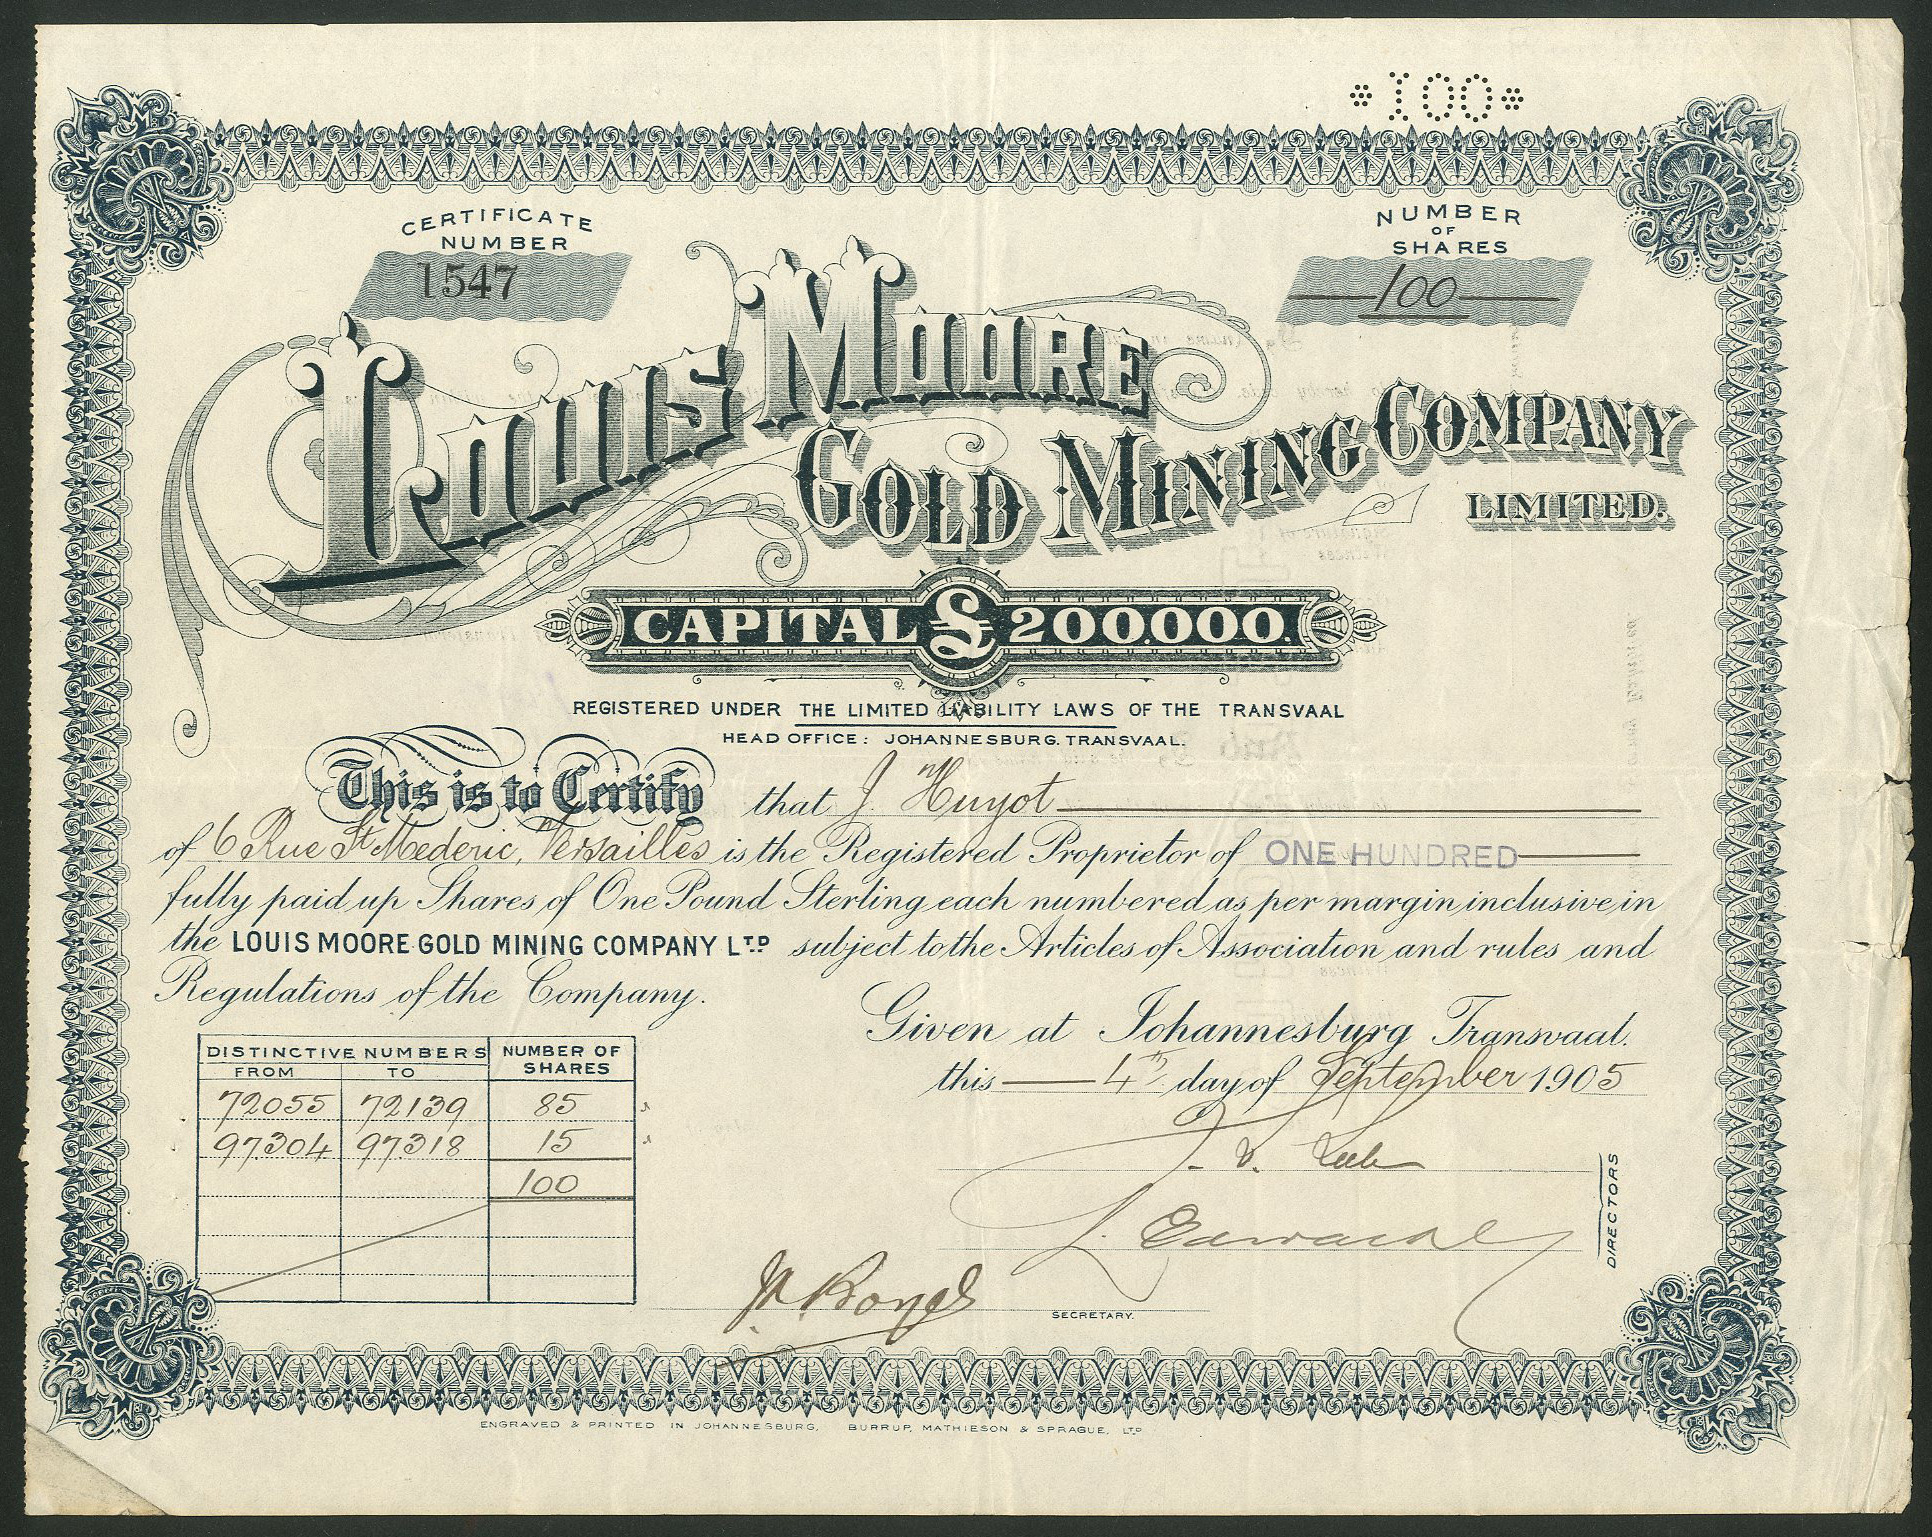 *100*
CERTIFICATE NUMBER
1547
NUMBER OF SHARES
100
LOUIS MOORE
GOLD MINING COMPANY
LIMITED.
CAPITAL £ 200.000.
REGISTERED UNDER THE LIMITED LIABILITY LAWS OF THE TRANSVAAL
HEAD OFFICE: JOHANNESBURG. TRANSVAAL.
This is to Certify that J. Huyot
of 6 Rue St Mederic, Versailles is the Registered Proprietor of ONE HUNDRED
fully paid up Shares of One Pound Sterling each numbered as per margin inclusive in
the LOUIS MOORE GOLD MINING COMPANY LTD. subject to the Articles of Association and rules and
Regulations of the Company.
Given at Johannesburg Transvaal.
this 4th day of September 1905
DISTINCTIVE NUMBERS NUMBER OF SHARES
FROM TO
72055 72139 85
97304 97318 15
100
DIRECTORS
SECRETARY.
ENGRAVED & PRINTED IN JOHANNESBURG, BURRUP, MATHIESON & SPRAGUE, LTD